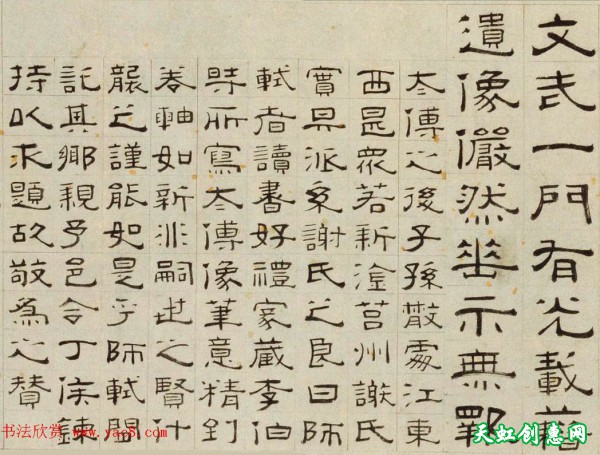 文武一門有光載藉
遺像儼然垂示無斁
太傅之後子孫散處江東
西是眾若新淦莒州謝氏
實其派系謝氏之良曰師
軾者讀書好禮家藏李伯
時所寫太傅像筆意精到
卷軸如新非嗣世之賢什
襲之謹能如是乎師軾閒
託其鄉親予邑令丁侯鍊
持以求題故敬為之贊
书法欣赏 www.yac8.com
天虹创意网